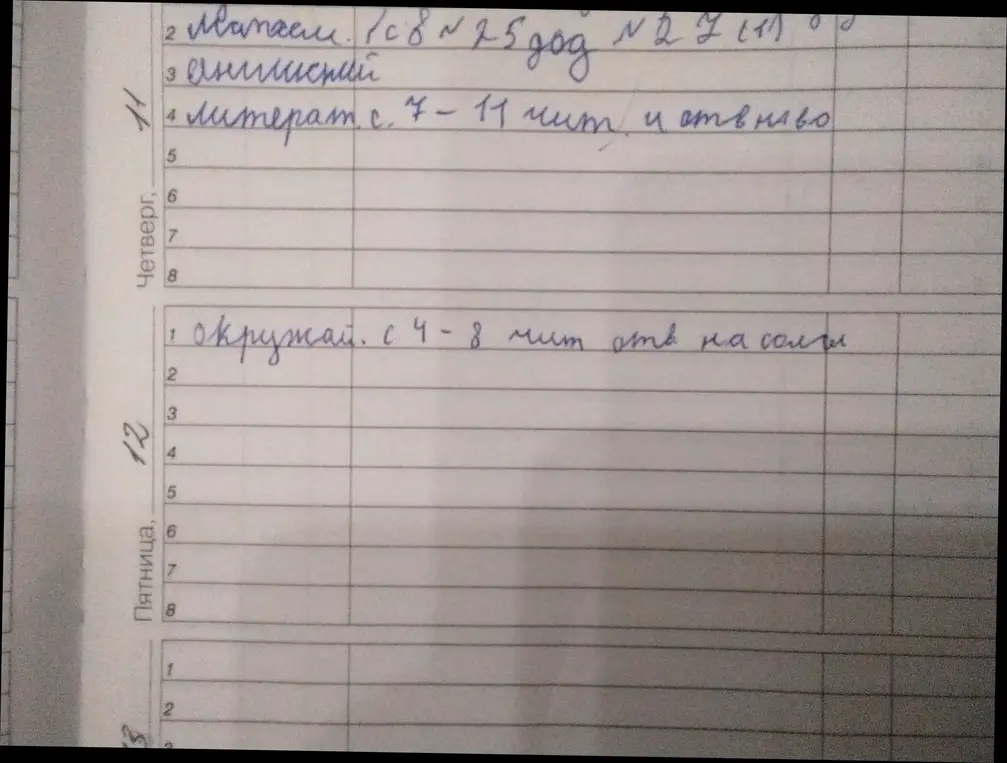 2 Матем. с 8 N 25 дод N 27 (1)
3 Английский
Четверг, 11
4 литерат. с. 7 - 11 чит. и отв на во
5
6
7
8
1 окружай. с 4 - 8 чит отв на
2
3
Пятница, 12
4
5
6
7
8
1
2